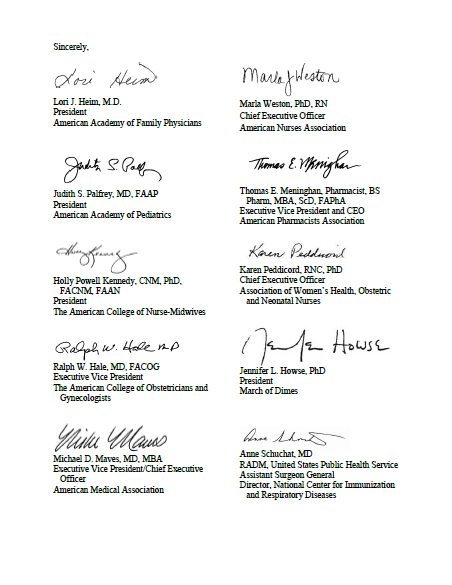 Sincerely,
Lori Heim
Lori J. Heim, M.D.
President
American Academy of Family Physicians
Judith S. Palfrey
Judith S. Palfrey, MD, FAAP
President
American Academy of Pediatrics
Holly Powell Kennedy, CNM, PhD,
FACNM, FAAN
President
The American College of Nurse-Midwives
Ralph W. Hale MD
Ralph W. Hale, MD, FACOG
Executive Vice President
The American College of Obstetricians and
Gynecologists
Michael D. Maves, MD, MBA
Executive Vice President/Chief Executive
Officer
American Medical Association
Marla J Weston
Marla Weston, PhD, RN
Chief Executive Officer
American Nurses Association
Thomas E. Menighan
Thomas E. Meninghan, Pharmacist, BS
Pharm, MBA, ScD, FAPhA
Executive Vice President and CEO
American Pharmacists Association
Karen Peddicord
Karen Peddicord, RNC, PhD
Chief Executive Officer
Association of Women's Health, Obstetric
and Neonatal Nurses
Howse
Jennifer L. Howse, PhD
President
March of Dimes
Anne Schuchat, MD
RADM, United States Public Health Service
Assistant Surgeon General
Director, National Center for Immunization
and Respiratory Diseases